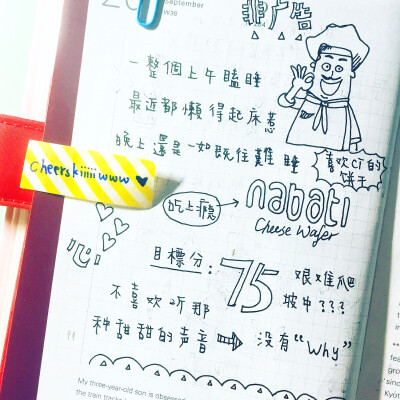 September
W38
非广告
一整個上午瞌睡
最近都懶得起床惹
晚上還是一如既往難睡
cheerskiiiiiwww
喜欢CJ的
饼干
吃上癮
nabati
Cheese Wafer
心
目標分：75
艰难爬
坡中???
不喜欢听那
种甜甜的声音
没有“Why”
My three-year-old son is obsessed
the train tracks